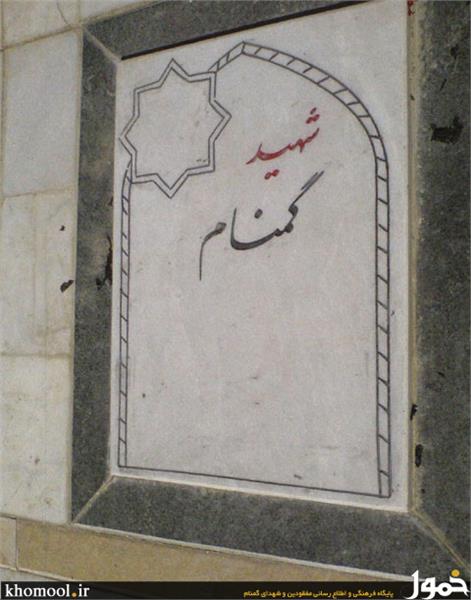 شهید
گمنام
khomool.ir
پایگاه فرهنگی و اطلاع رسانی مفقودین و شهدای گمنام
خمول